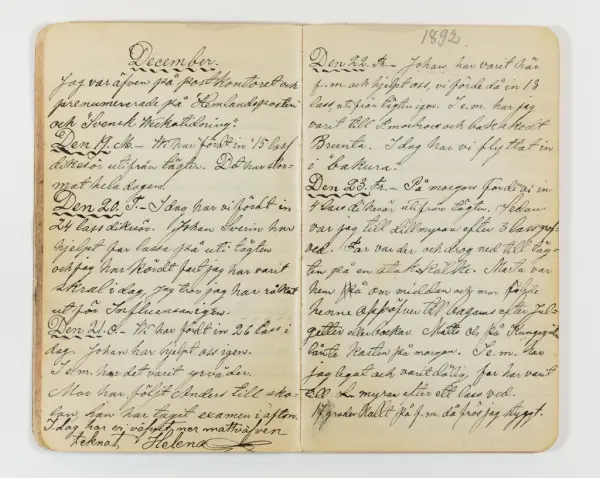 December.
Jag var äfven på postkontoret och
prenumererade på "Hemlandsposten"
och "Svensk Veckotidning".
Den 19. M.- Vi har fördt in 15 lass
dikesör utifrån tägten. Det har stor-
mat hela dagen.
Den 20. T.- I dag har vi fördt in
24 lass dikesör. Johan Sverin har
hjelpt far lassa på uti tägten
och jag har kördt fast jag har varit
skral i dag, jag tror jag har råkat
ut för Influensan igen.
Den 21. O.- Vi har fördt in 26 lass i
dag. Johan har hjelpt oss igen.
I e.m. har det varit urväder.
Mor har följt Anders till sko-
lan, han har tagit examen i afton.
I dag har vi väfvit ner mattväfven
teknat Helena
1892
Den 22. Fr.- Johan har varit här
f.m. och hjelpt oss, vi förde då in 13
lass utifrån tägten igen. I e.m. har jag
varit till och
Brunta. I dag har vi flyttat in
i "bakura".
Den 23. Fr.- På morgon förde vi in
4 lass dikesör utifrån tägten. Sedan
var jag till Lillmyran efter 3 lass
ved. Far var der och drog ned till täg-
ten på en Marta var
hem på en middag och mor följde
henne oppöfver till bagans efter Jul-
getter eller bockar. Matts Ols på
lånte Karten på morgon. I e.m. har
jag legat och varit dålig, far har varit
till L. myran efter ett lass ved.
17 grader kallt på f.m. då frös jag styggt.